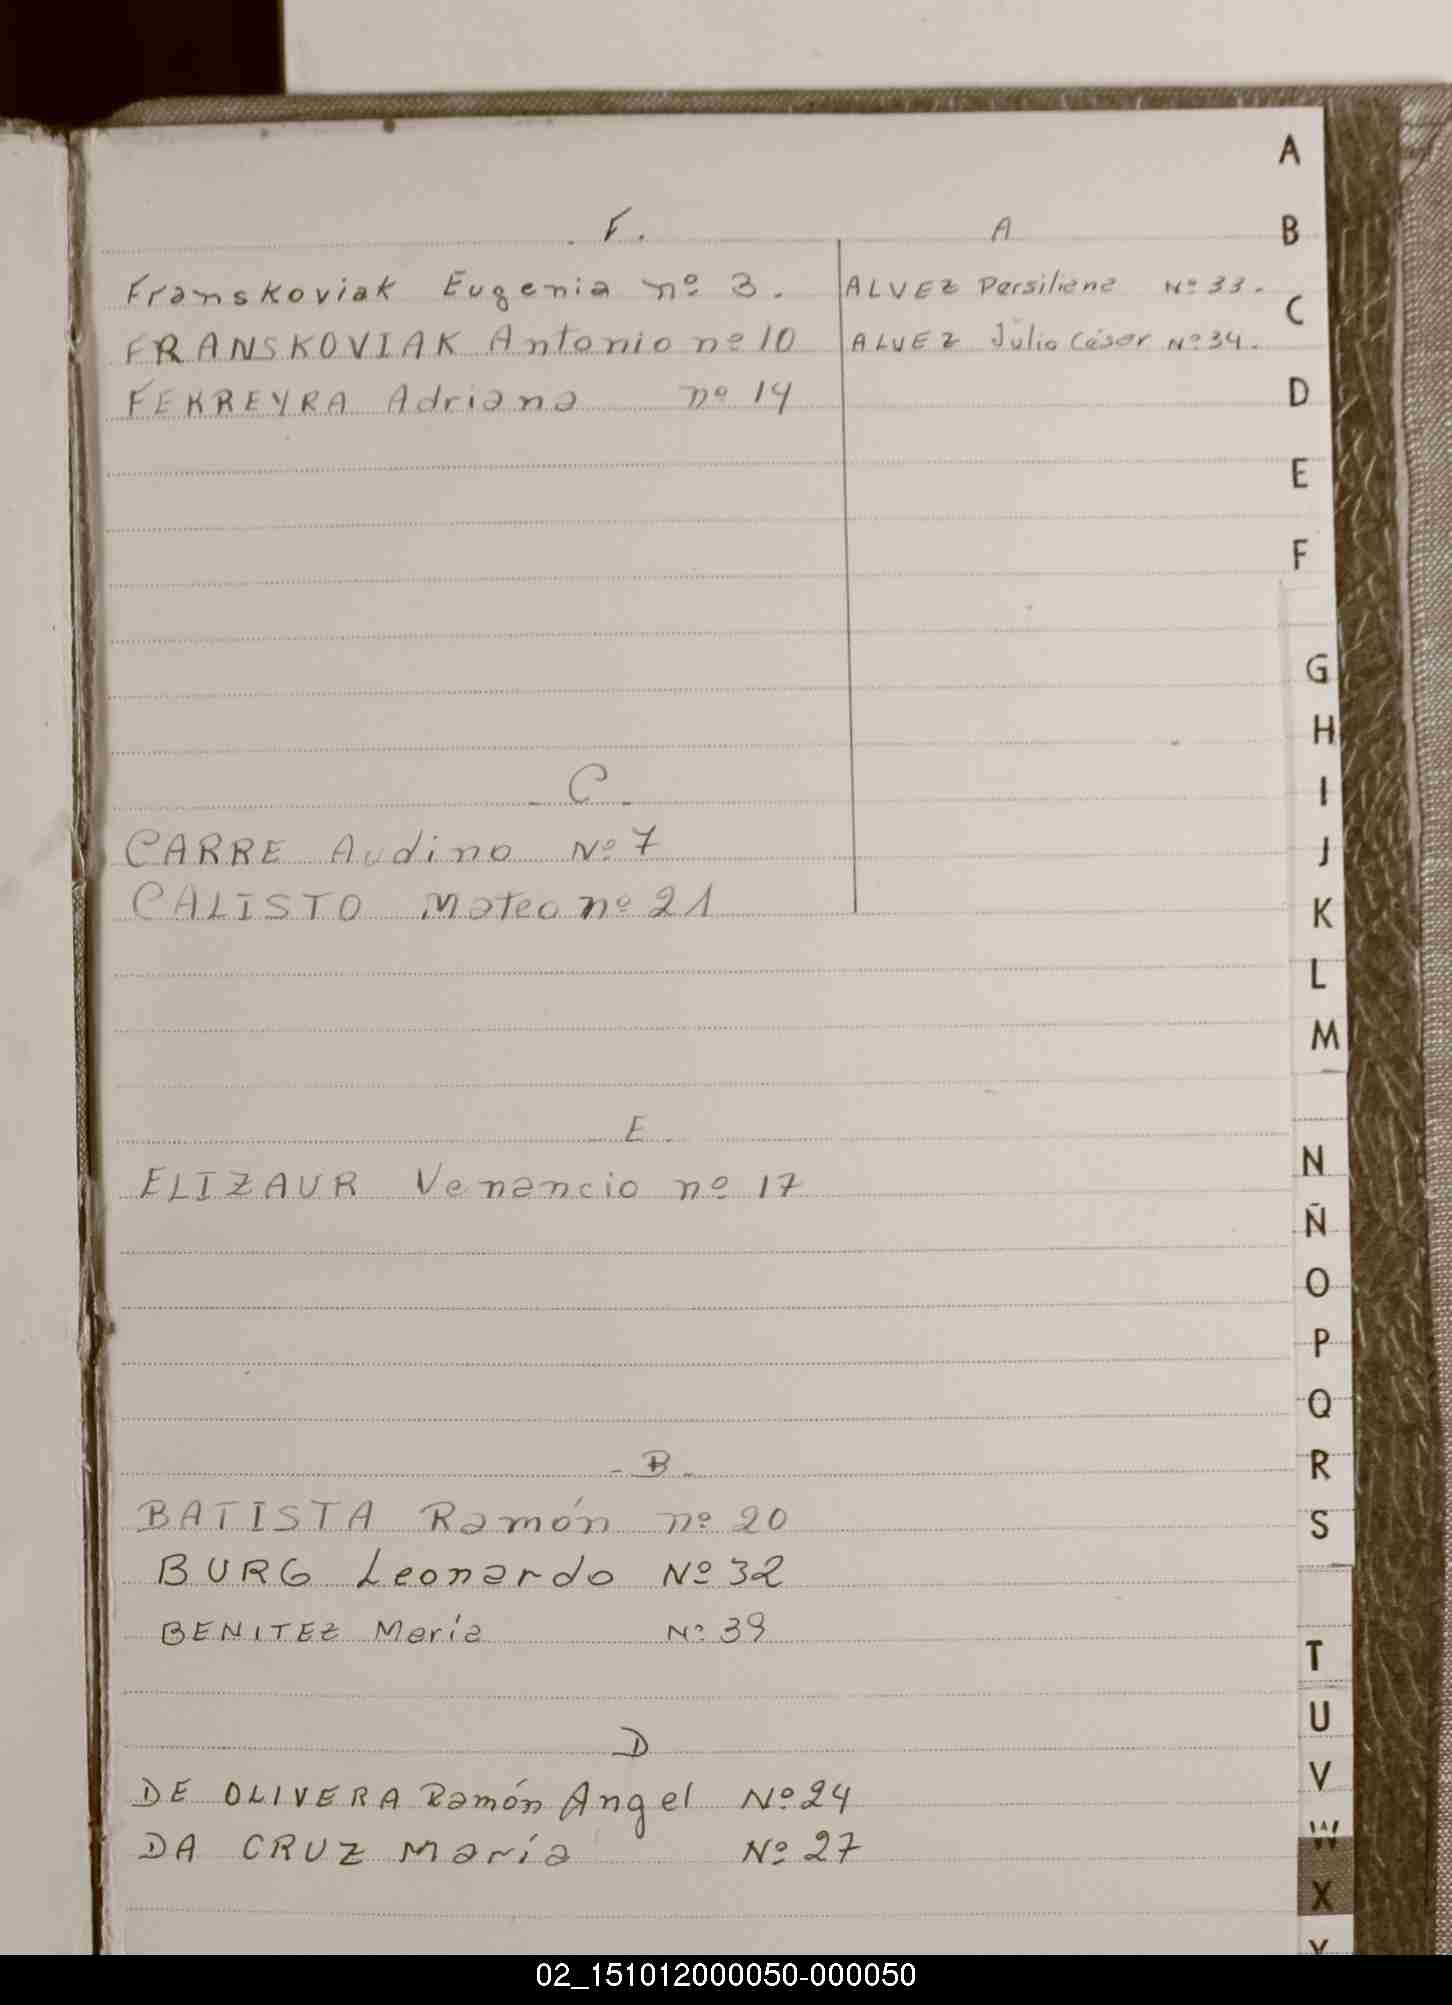 F.
Franskoviak Eugenia nº 3.
FRANSKOVIAK Antonio nº 10
FERREYRA Adriana nº 14
A
ALVEZ Persiliana Nº 33.
ALVEZ Julio César Nº 34.
- C -
CARRE Audino Nº 7
CALISTO Mateo nº 21
E
ELIZAUR Venancio nº 17
- B -
BATISTA Ramón nº 20
BURG Leonardo Nº 32
BENITEZ María Nº 39
D
DE OLIVERA Ramón Angel Nº 24
DA CRUZ María Nº 27
A
B
C
D
E
F
G
H
I
J
K
L
M
N
Ñ
O
P
Q
R
S
T
U
V
W
X
Y
02_151012000050-000050